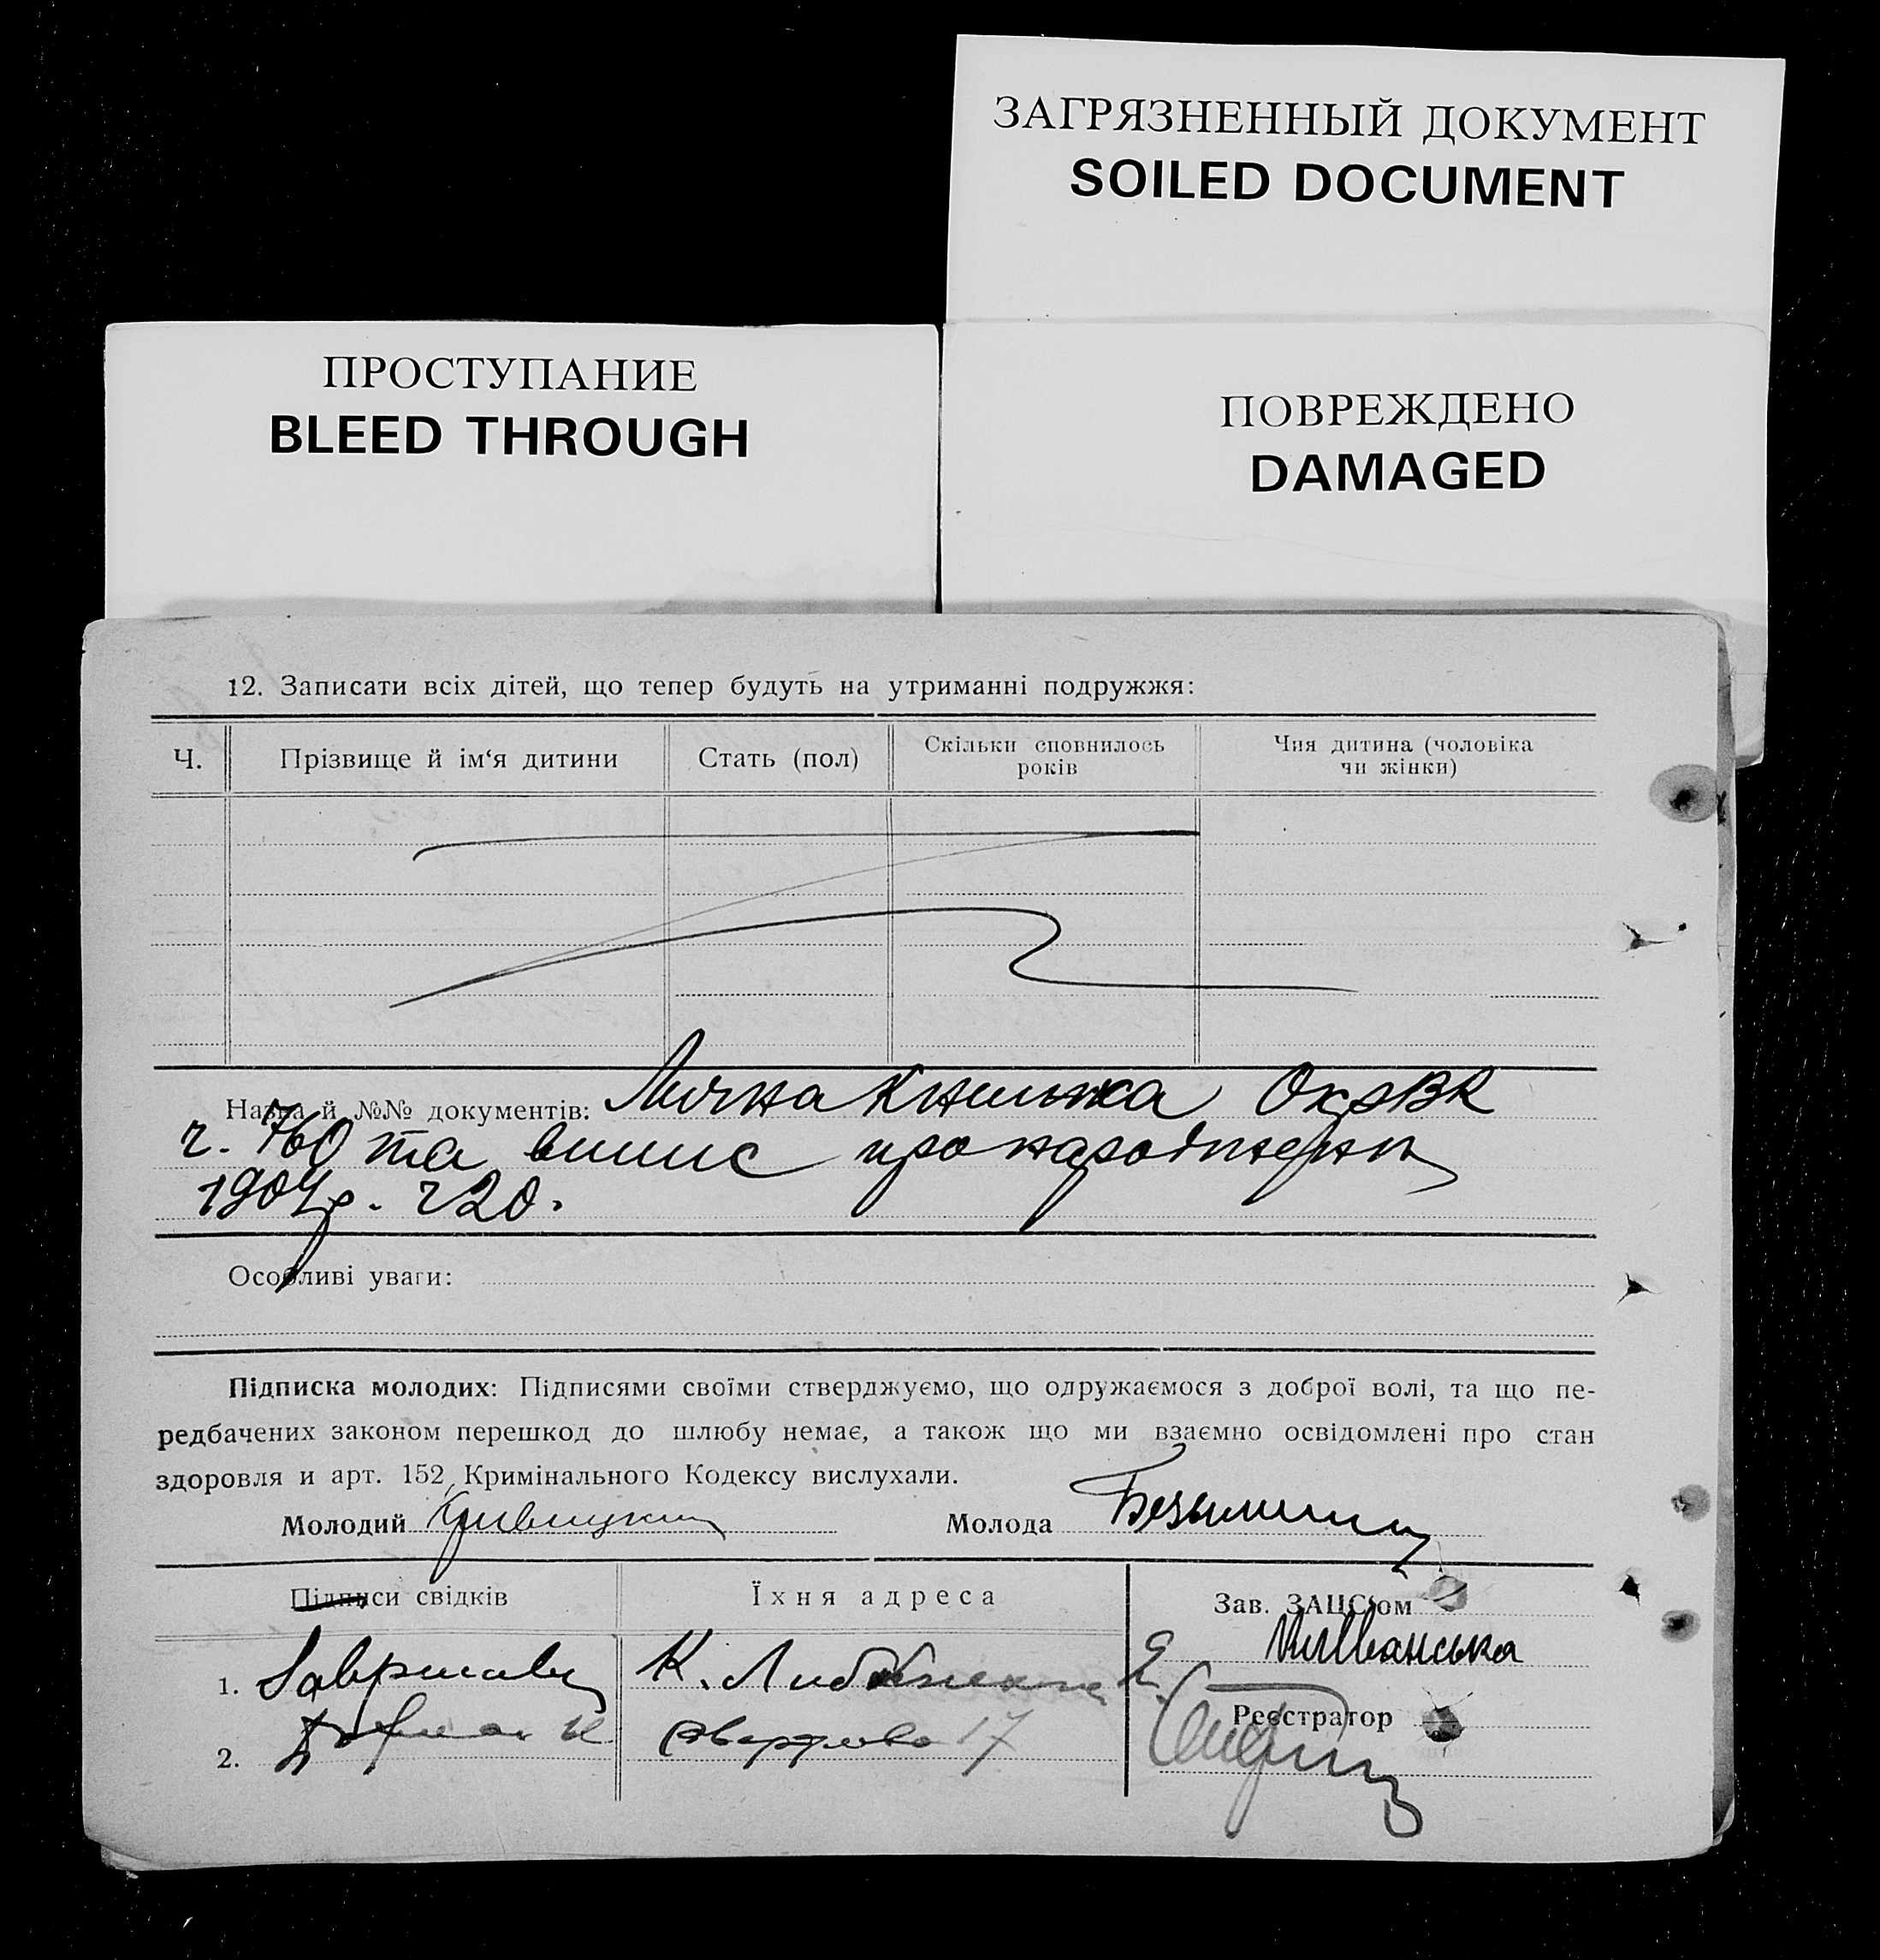 ЗАГРЯЗНЕННЫЙ ДОКУМЕНТ
SOILED DOCUMENT
ПРОСТУПАНИЕ
BLEED THROUGH
ПОВРЕЖДЕНО
DAMAGED
12. Записати всіх дітей, що тепер будуть на утриманні подружжя:
Ч.
Прізвище й ім‘я дитини
Стать (пол)
Скільки сповнилось
років
Чия дитина (чоловіка
чи жінки)
Назва й №№ документів: Лична Книжка ОкрВК
ч. 760 та випис про народження
1904р. ч20.
Особливі уваги:
Підписка молодих: Підписями своїми стверджуємо, що одружаємося з доброї волі, та що пе-
редбачених законом перешкод до шлюбу немає, а також що ми взаємно освідомлені про стан
здоровля и арт. 152 Кримінального Кодексу вислухали.
Молодий
Молода
Підписи свідків
Їхня адреса
Зав. ЗАЦС‘ом
1.
К.
Реєстратор
2.
17